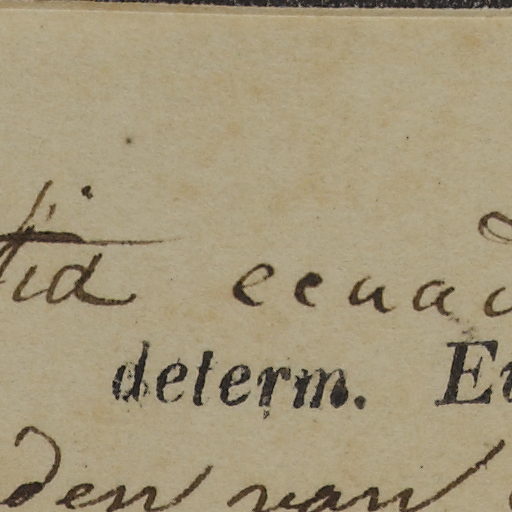 tia ecuad
determ. E
den van